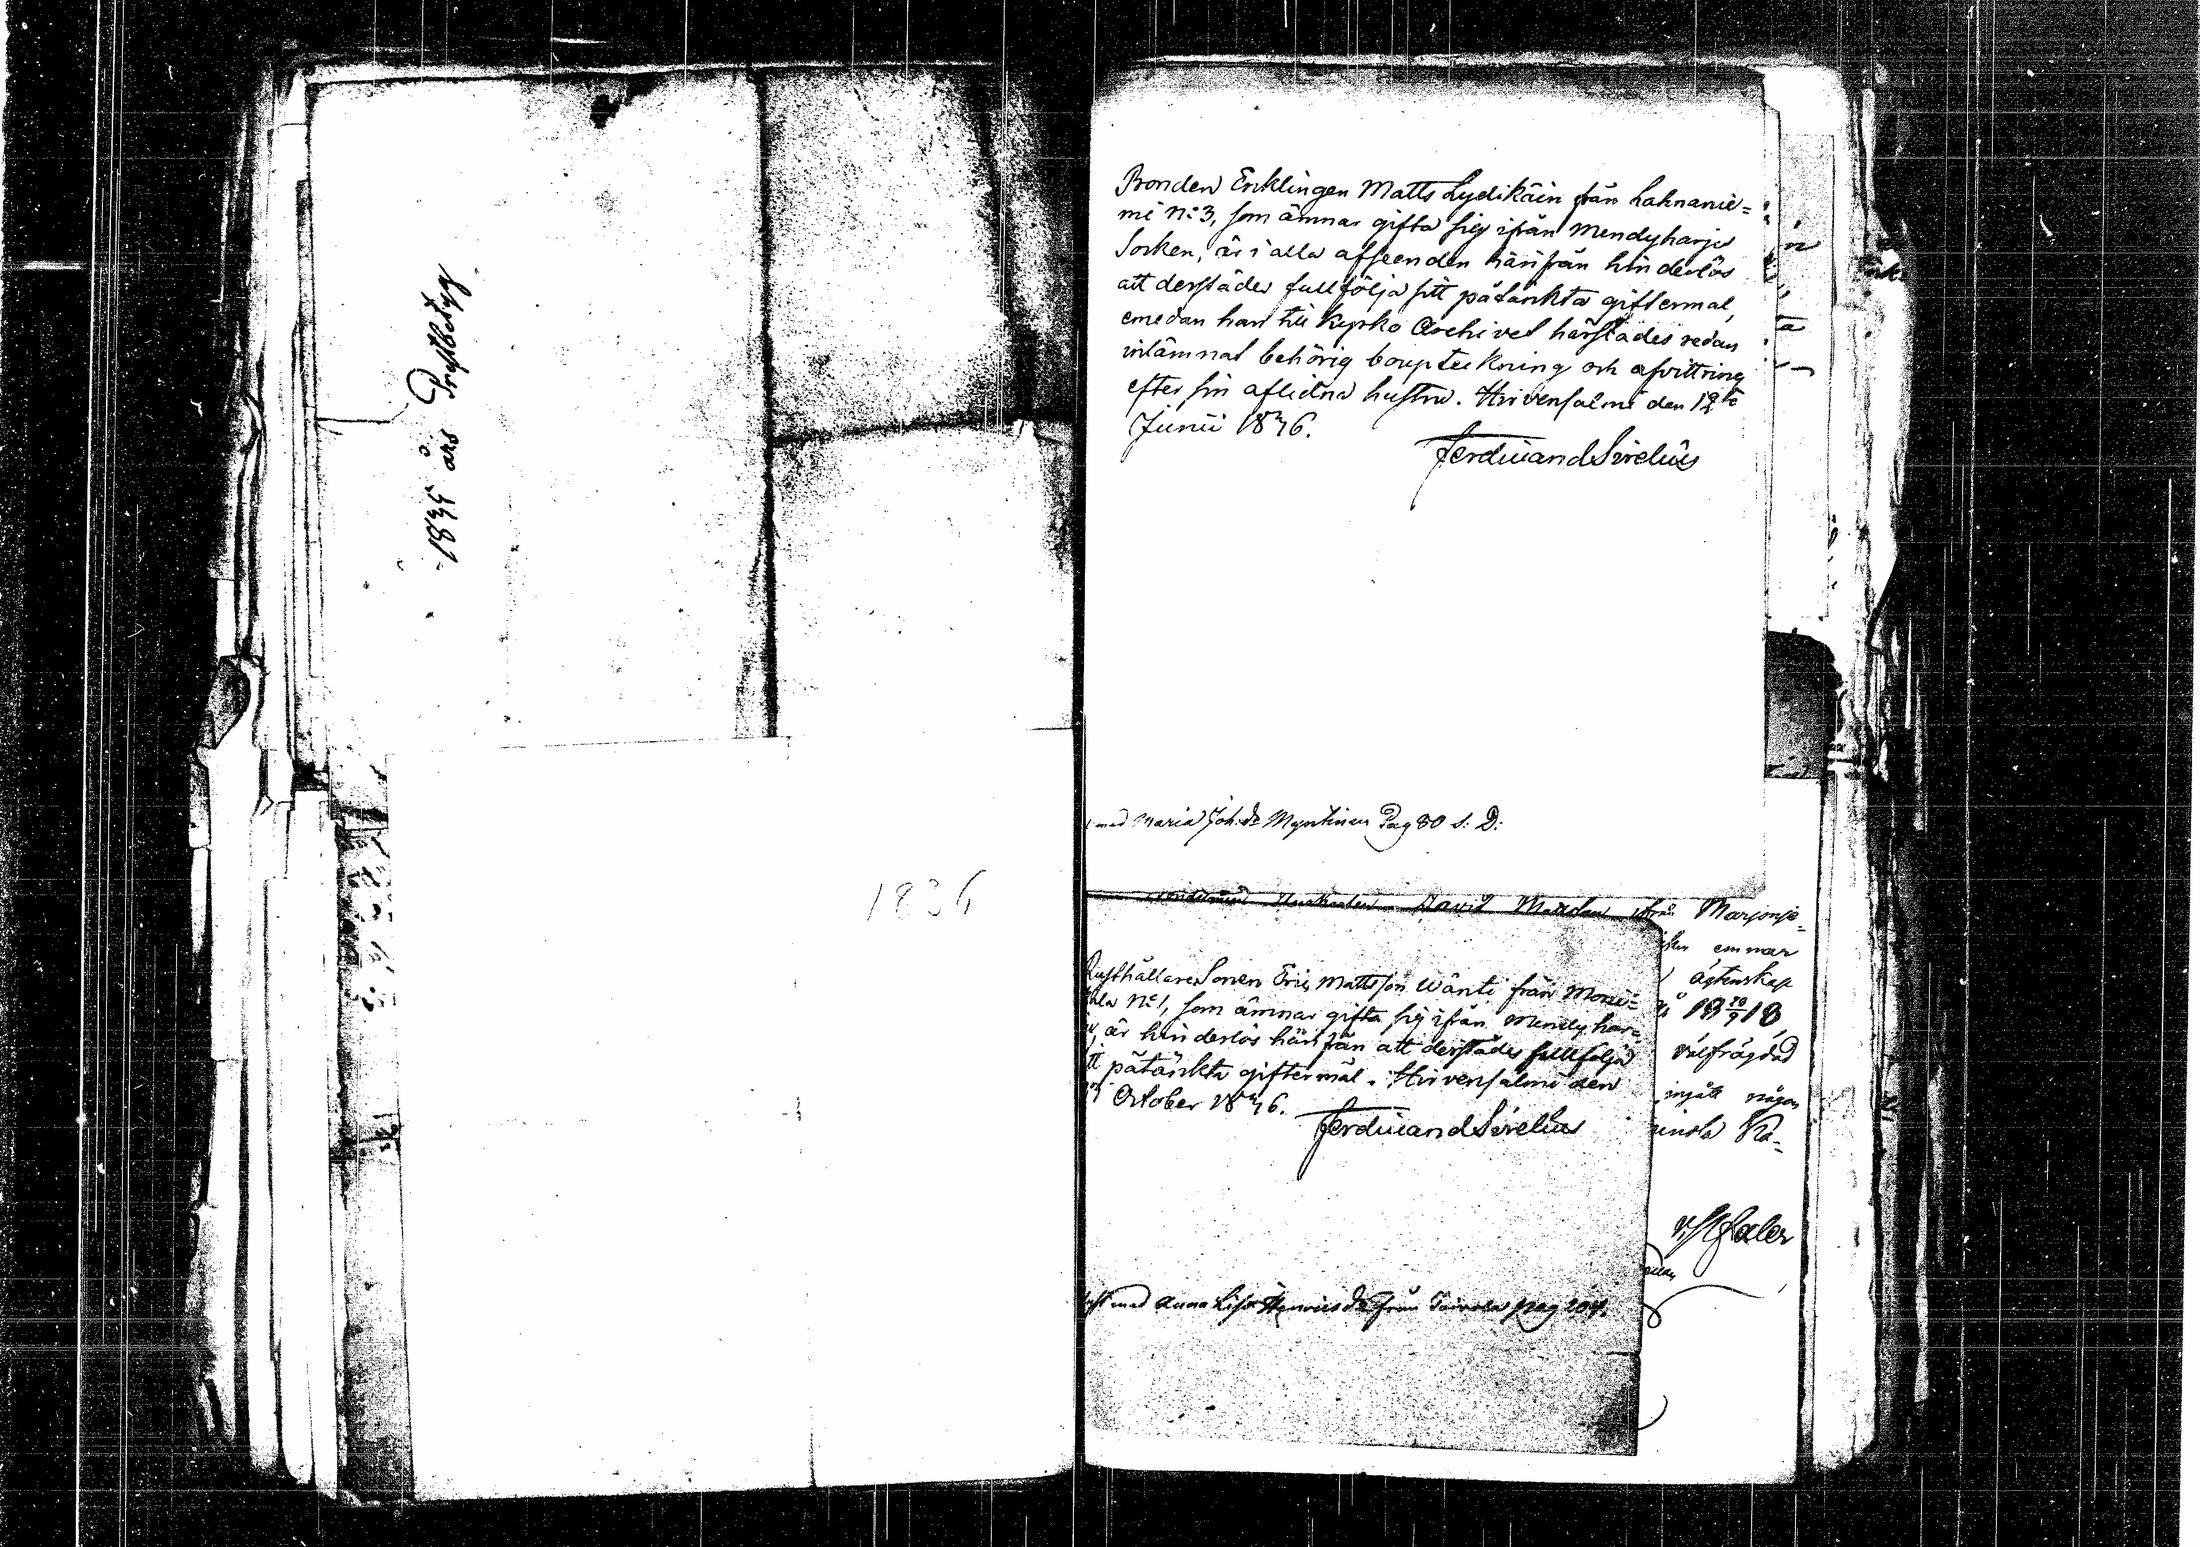 1835 års Prestbetyg
1836
Bonden Enklingen Matts Lydikäin från Lahnanie=
mi N:o 3, som ämnar gifta sig ifrån Mendyharju
Socken, är i alla afseenden härifrån hinderlös
att derstädes fullfölja sitt påtänkta giftermal,
emedan han till Kyrko Archivet härstädes redan
inlämnat behörig bouptekning och afvittring
efter sin aflidna hustru. Hirvensalmi den 12te
Junii 1836.
Ferdinand Sirelius
med Maria Joh:dr Myntinen Pag 80 S: D:
David från Marjonje=
Rusthållare Sonen Eric Mattsson Wänti från Moni=
N:o 1, som ämnar gifta sig ifrån Mendyhar=
är hinderlös härifrån att derstädes fullfölja
tt påtänkta giftermål. Hirvensalmi den
October 1836.
Ferdinand Sirelius
med Anna Lisa Henricsdr från Toivola pag 204.
emmar
ägtenskap
18 29/9 18
välfrägdad
ingått någon